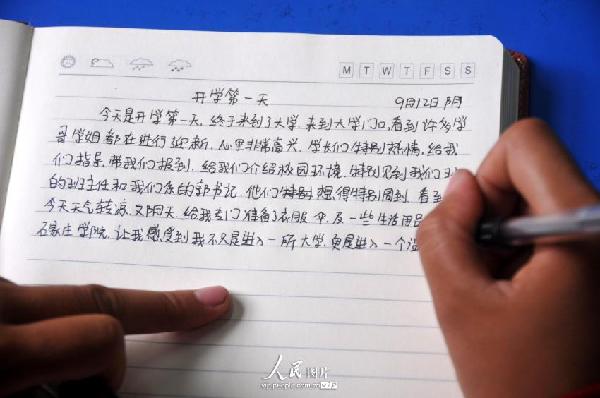 M T W T F S S
开学第一天 9月12日 阴
今天是开学第一天，终于来到了大学，来到大学门口，看到许多学
哥学姐都在进行迎新，心里非常高兴，学长们特别热情，给我
们指导，带我们报到，给我们介绍校园环境，特别见到我们
的班主任和我们系的郭书记，他们特别想得特别周到，看到
今天天气转凉，又阴天，给我们准备了衣服，伞，及一些生活用品
石家庄学院，让我感受到我不仅是进入一所大学，更是进入一个
人民图片
vip.people.com.cn